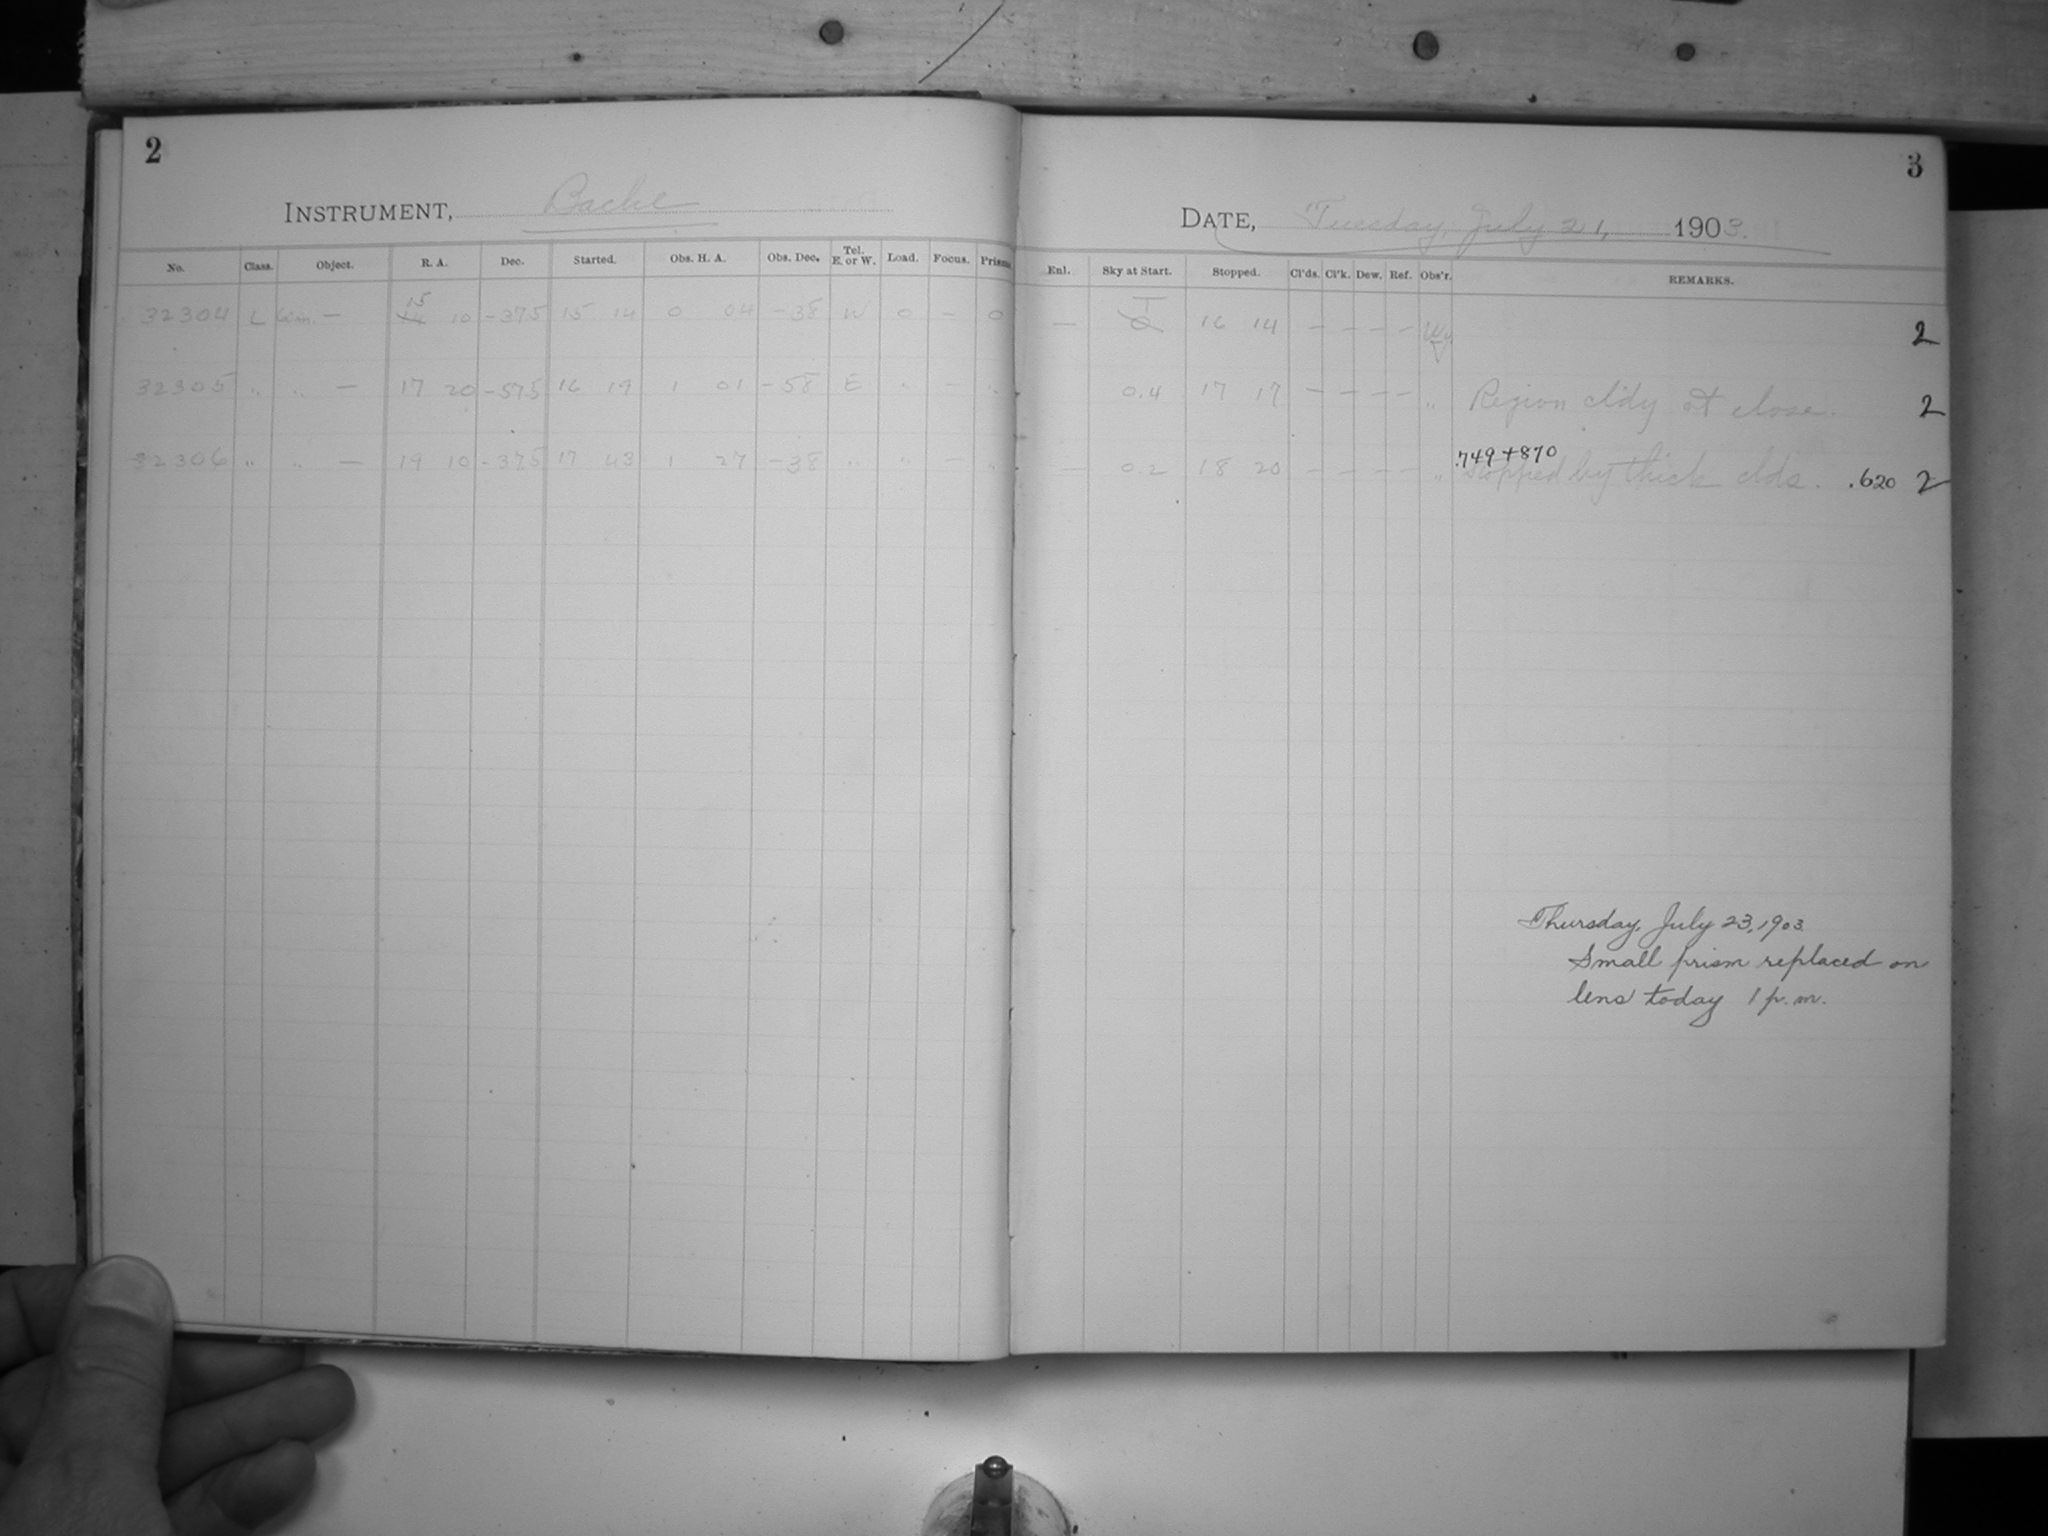 2
INSTRUMENT, Bache
No. Class. Object. R. A. Dec. Started. Obs. H. A. Obs. Dec. Tel. E. or W. Load. Focus. Prisms
15
32304 L — 14 10 -37.5 15 14 0 04 -38 W 0 — 0
32305 " " — 17 20 -57.5 16 19 1 01 -58 E " — "
32306 " " — 19 10 -37.5 17 43 1 27 -38 " " — "
3
DATE, Tuesday, July 21, 1903.
Enl. Sky at Start. Stopped. Cl'ds. Cl'k. Dew. Ref. Obs'r. REMARKS.
— 16 14 — — — — 2
0.4 17 17 — — — — " Region cl'dy at close. 2
.749+870
— 0.2 18 20 — — — — " Stopped by thick clds. .620 2
Thursday, July 23, 1903.
Small prism replaced on
lens today 1 p.m.